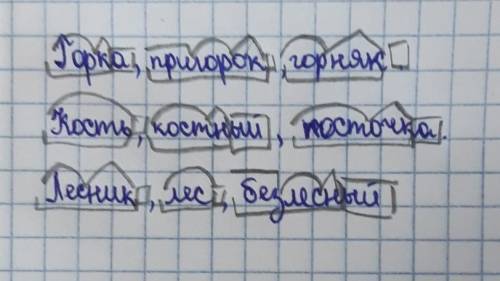 Горка, пригорок, горняк
Кость, костный, косточка.
Лесник, лес, безлесный